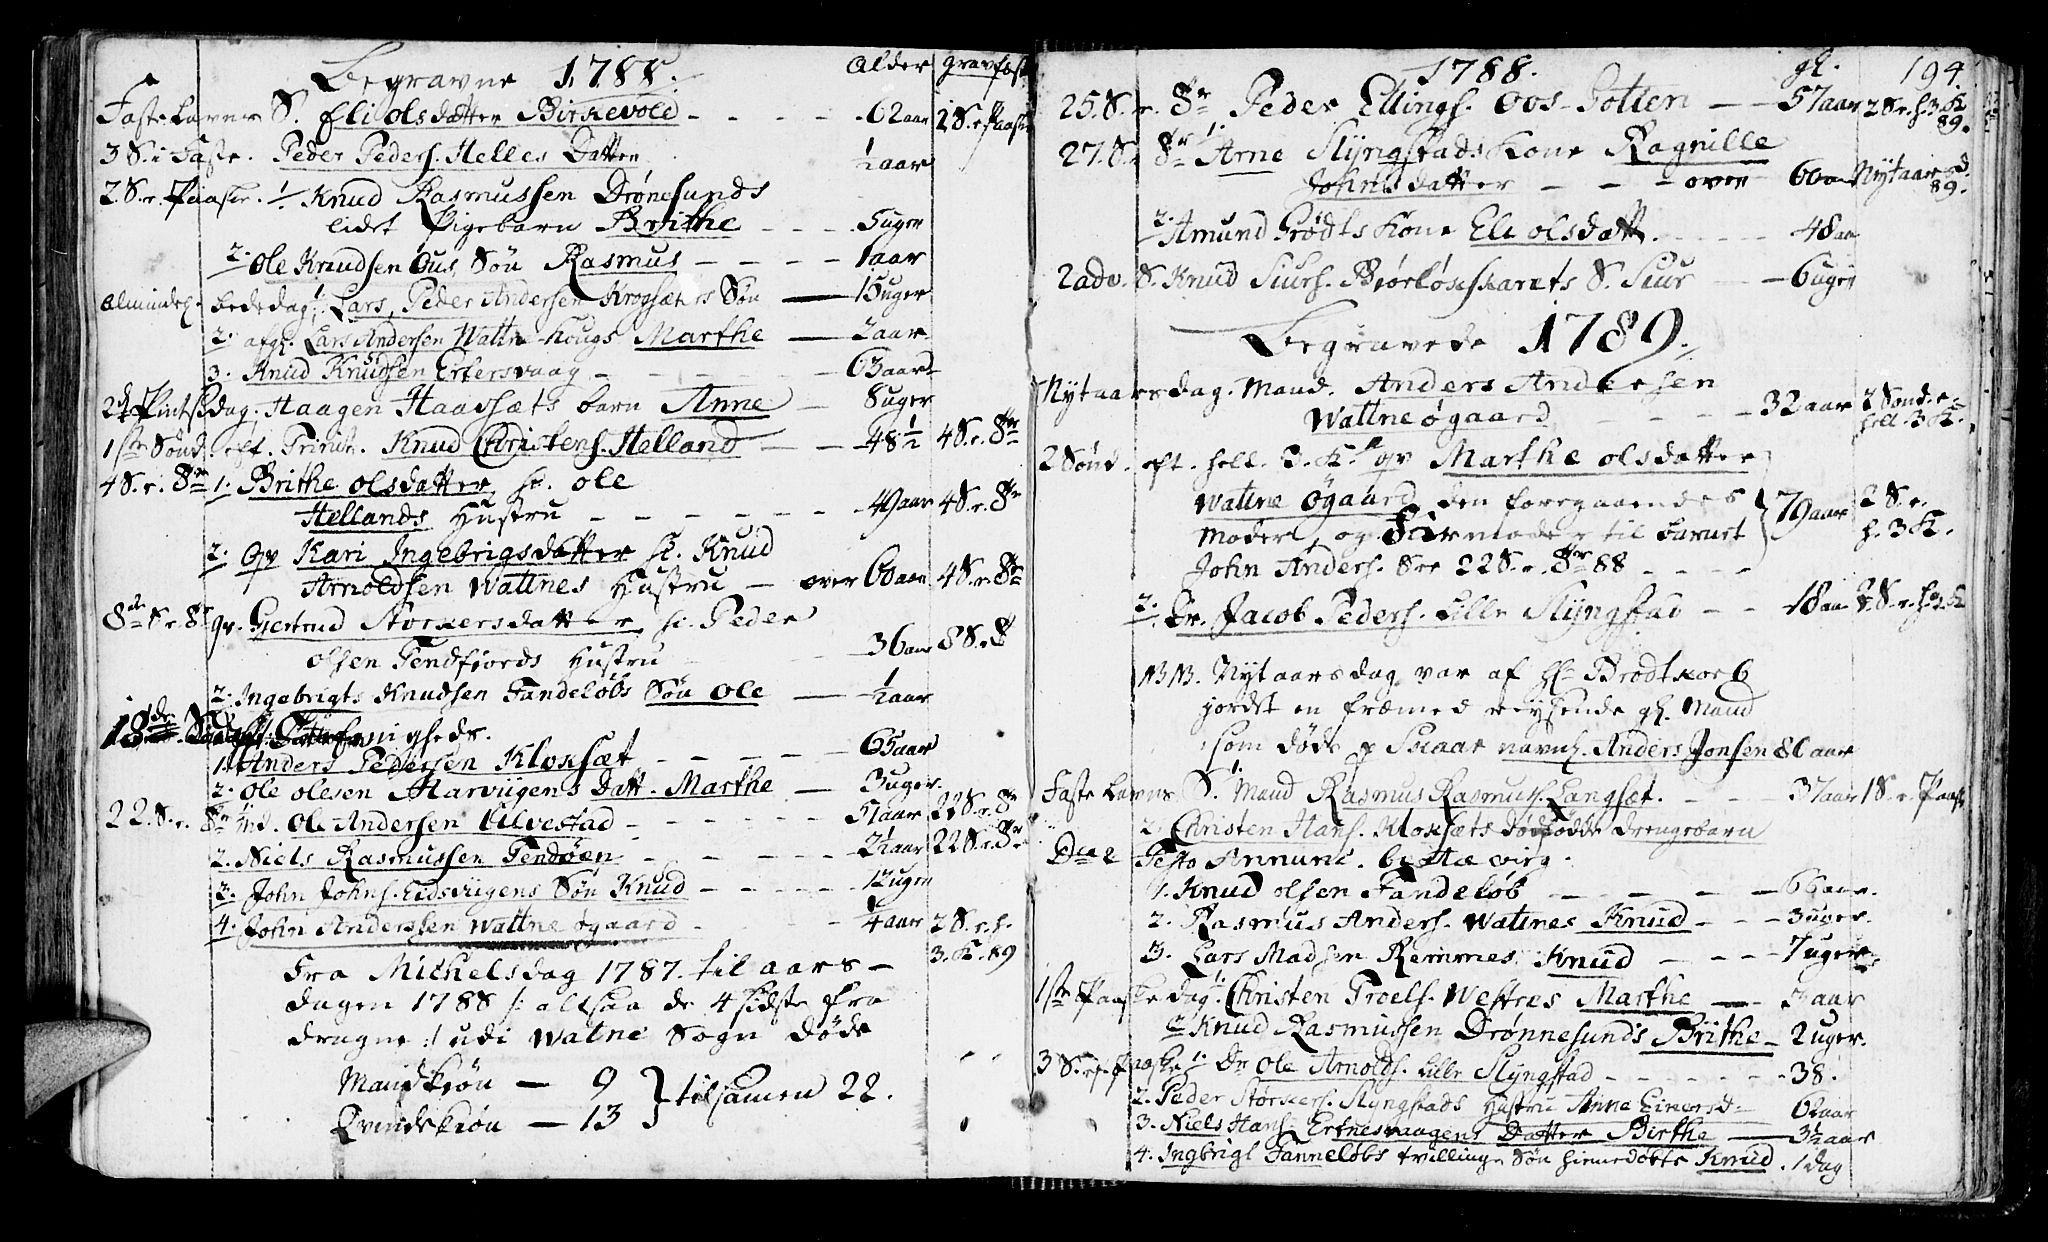 Begravne 1788.
Alder gravfæst
Fastelavns S. Eli olsdatter Birkevold - - - - 62 aar 2 S. e. Paaske
3 S. i Faste. Peder Peders. Helles Datter ½ aar
2 S. e. Paaske. 1/ Knud Rasmussen Drønesunds
lidet Pigebarn Brithe - - - 5 uger
2. Ole Knudsen Ous Søn Rasmus - - - - 1 aar
Almindel. Bededag 1. Lars, Peder Andersen Krogsæters Søn — 15 uger
2. afg. Lars Andersen Watne-Hougs Marthe — 2 aar
3. Knud Knudsen Erkersvaag - - - - 63 aar
2d Pintsdag. Haagen Haavsæts barn Anne — 8 uger
1ste Sønd. eft. Trinit. Knud Christens. Helland — 48½ 4 S. e. Tr
4 S. e. Tr 1. Brithe olsdatter, S. ole
Hellands Hustru - - - - - - 49 aar 4 S. e. Tr
2. Gv Kari Ingebrigsdatter S. Knud
Arnoldsen Watnes Hustru — over 60 aar 4 S. e. Tr
8de S. e. Tr gv. Gertrud Størkersdatter, S. Peder
olsen Tendfiords Hustru 36 aar 8 S. e. Tr
2. Ingebrigts Knudsen Fandeløbs Søn Ole — ½ aar
18de S.
1. Anders Pedersen Kloxsæt - - - - 65 aar
2. Ole olesen Harviigens Datt. Marthe — 3 uger.
22. S. e. Tr 1. md. Ole Andersen Ulvestad - - - - 51 aar 22 S. e. Tr
2. Niels Rasmussen Tendøen - - - - 2½ aar 22 S. e. Tr
3. John Johns. Eidsviigens Søn Knud - - - - 12 uger
4. John Anderssen Watne øgaard - - - ¼ aar 2 S. e. h.
3. K. 89
Fra Michelsdag 1787. til aars-
dagen 1788 /: altsaa de 4 sidste fra
dragne :/ udi Watne Sogn døde
Mandkiøn — 9
Qvindekiøn — 13 } tilsamen 22.
1788. gl. 194
25. S. e. Tr Peder Ellings. Oos-Hollen — 57 aar 2 S. e. h. 3 K
89.
27. S. e. Tr 1. Arne Slyngstads Kone Ragnille
Johnsdatter - - - over 60 aar Nytaarsd.
89.
2. Amund Grødts Kone Eli olsdatt. - - - 48 aar
2 adv. S. Knud Siurs. Biørløxskarets S. Siur — 6 uger
Begravede 1789.
Nytaarsdag. Mand. Anders Andersen
Watne øgaard - - - 32 aar 2 Sond. e.
hell. 3 K.
2 Sønd. eft. hell. 3. K. gv Marthe olsdatter
Watne øgaard, den foregaaendes
Moder, og Farmoder til barnet } 79 aar 2 S. e.
h. 3 K.
John Anders. See 22 S. e. Tr 88 - - -
2. Dr. Jacob Peders. Lille Slyngstad - - 18 aar 2 S. e. h. 3 K
NB. Nytaarsdag var af Hr Brodtkorb
jordet en fræmed reysende gl. Mand
som døde p Skaar navnl. Anders Jonsen 80 aar
Fastelavns S. 1. Mand Rasmus Rasmus. Langsæt. - - - 37 aar 1 S. e. Paaske
2. Christen Hans. Kloxsæts dødfødde drengebarn
Die Festo Annunc. b. Mæ virg.
1. Knud olsen Fandeløb - - - - 66 aar.
2. Rasmus Anders. Watnes Knud - - - 3 uger.
3. Lars Madsen Remmes Knud - - - 7 uger.
1ste Paaskedag 1. Christen Troels. Westres Marthe — 3 aar
2 Knud Rasmussen Drønnesunds Brithe — 2 uger.
3 S. e. Paaske 1. Dr Ole Arnolds. Lille Slyngstad - - - - 38.
2. Peder Størkers. Slyngstads Hustru Anne Einersd. 62 aar
3. Niels Hans. Erknesvaagens Datter Birthe — 3½ aar
4. Ingbrigt Fanneløbs tvillinge Søn hiemedøbte Knud. 1 dag